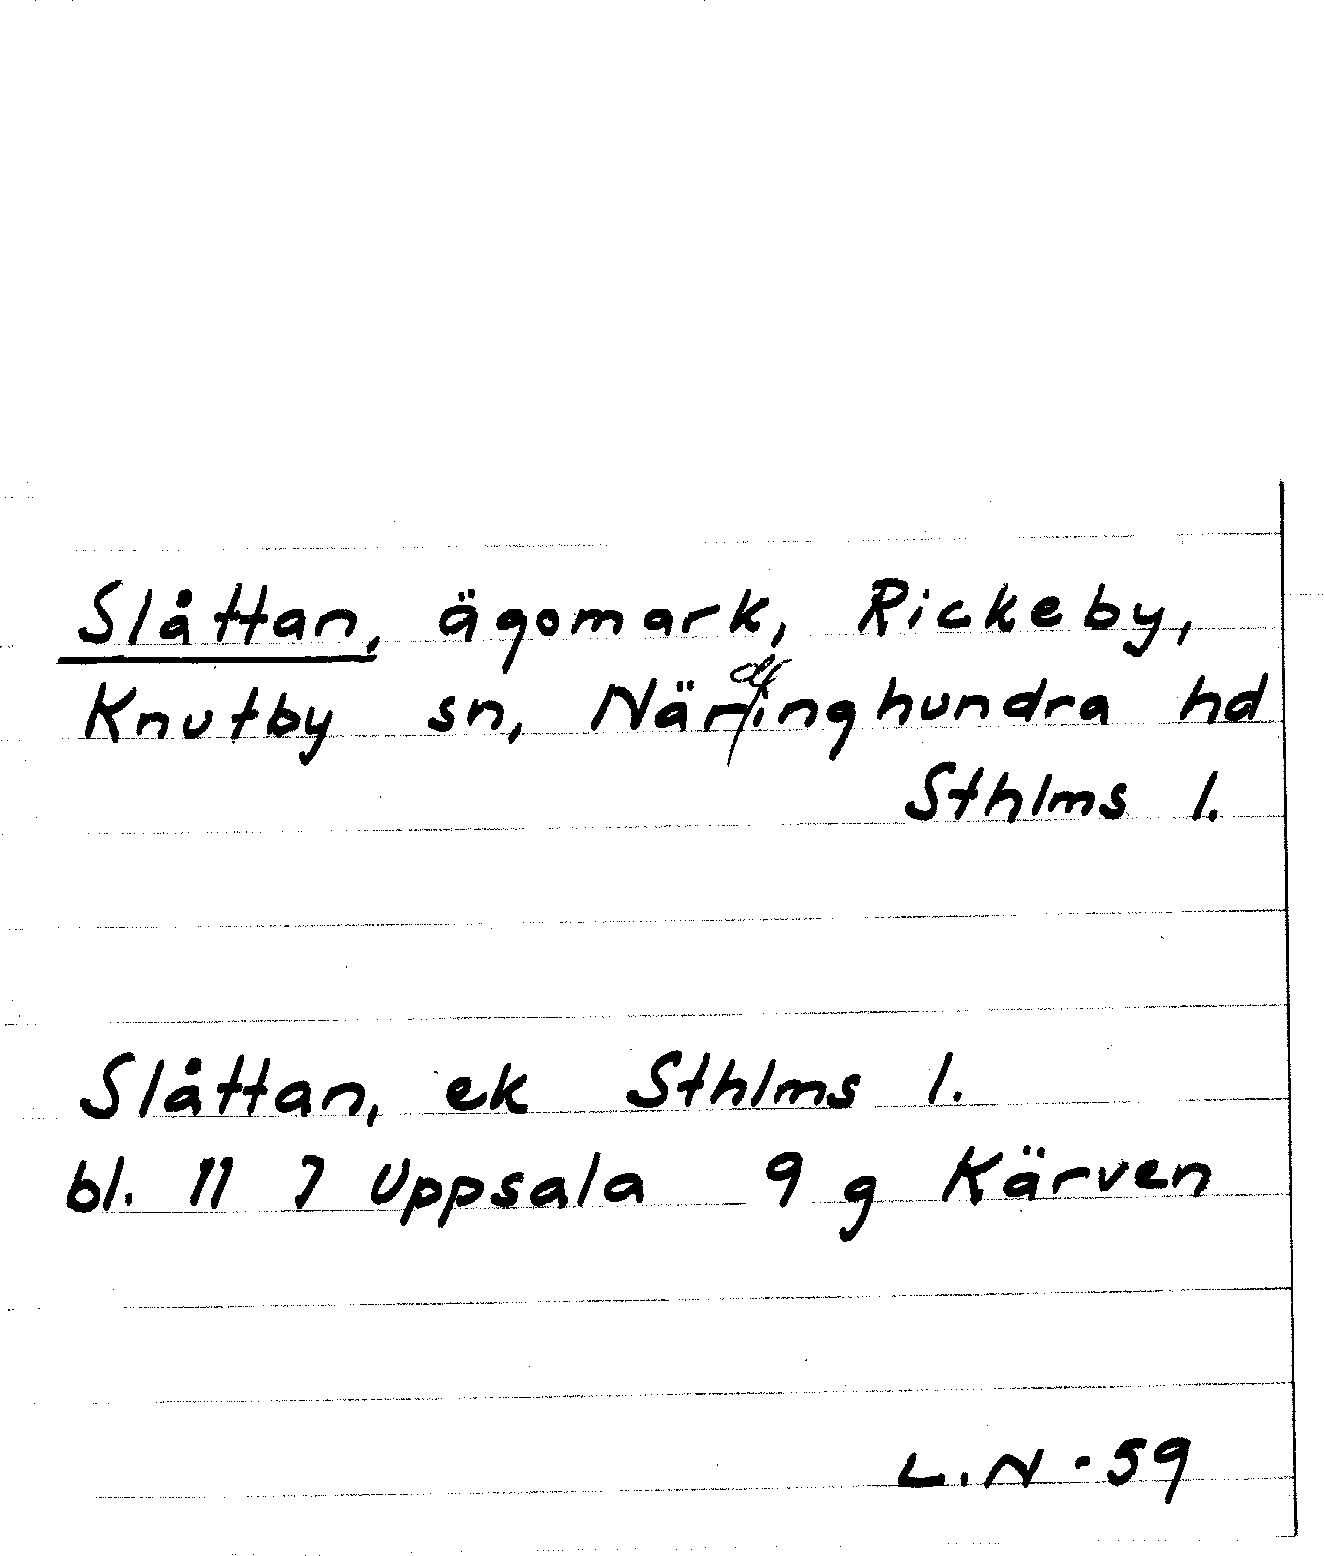 Slåttan, ägomark, Rickeby,
Knutby sn, Näringhundra hd
Sthlms l.
Slåttan, ek Sthlms l.
bl. 11 7 Uppsala 9 g Kärven
L.N - 59